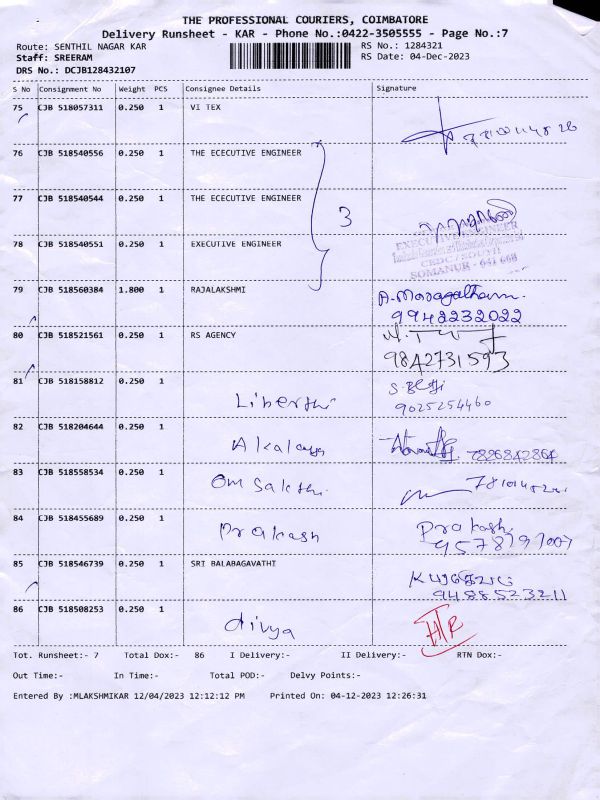 THE PROFESSIONAL COURIERS, COIMBATORE
Delivery Runsheet - KAR - Phone No.:0422-3505555 - Page No.:7
Route: SENTHIL NAGAR KAR RS No.: 1284321
Staff: SREERAM RS Date: 04-Dec-2023
DRS No.: DCJB128432107
S No Consignment No Weight PCS Consignee Details Signature
75 CJB 518057311 0.250 1 VI TEX
76 CJB 518540556 0.250 1 THE ECECUTIVE ENGINEER
77 CJB 518540544 0.250 1 THE ECECUTIVE ENGINEER
3
78 CJB 518540551 0.250 1 EXECUTIVE ENGINEER
EXECUTIVE ENGINEER
CEDC / SOUTH
SOMANUR - 641 668
79 CJB 518560384 1.800 1 RAJALAKSHMI A. Maragatham
9942232022
80 CJB 518521561 0.250 1 RS AGENCY
9842731593
81 CJB 518158812 0.250 1
9025254460
82 CJB 518204644 0.250 1 7826842864
83 CJB 518558534 0.250 1 Om Sakthi
84 CJB 518455689 0.250 1 Prakash Prakash
85 CJB 518546739 0.250 1 SRI BALABAGAVATHI
9488523211
86 CJB 518508253 0.250 1 divya
Tot. Runsheet:- 7 Total Dox:- 86 I Delivery:- II Delivery:- RTN Dox:-
Out Time:- In Time:- Total POD:- Delvy Points:-
Entered By :MLAKSHMIKAR 12/04/2023 12:12:12 PM Printed On: 04-12-2023 12:26:31